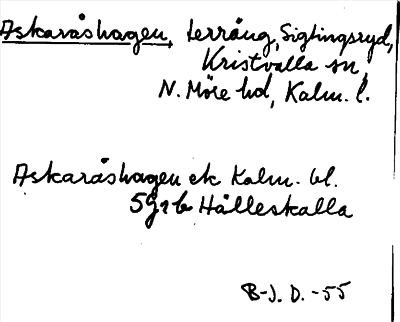 Askaråshagen, terräng, Sigtingsryd,
Kristvalla sn,
N. Möre hd, Kalm. l.
Askaråshagen ek Kalm. bl.
5G1b Hälleskalla
B-J. D. -55